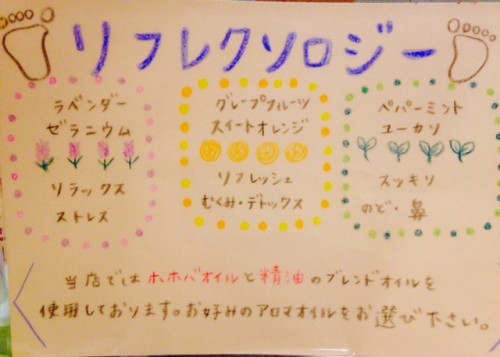 リフレクソロジー
ラベンダー
ゼラニウム
リラックス
ストレス
グレープフルーツ
スイートオレンジ
リフレッシュ
むくみ・デトックス
ペパーミント
ユーカリ
スッキリ
のど・鼻
当店ではホホバオイルと精油のブレンドオイルを
使用しております。お好みのアロマオイルをお選び下さい。